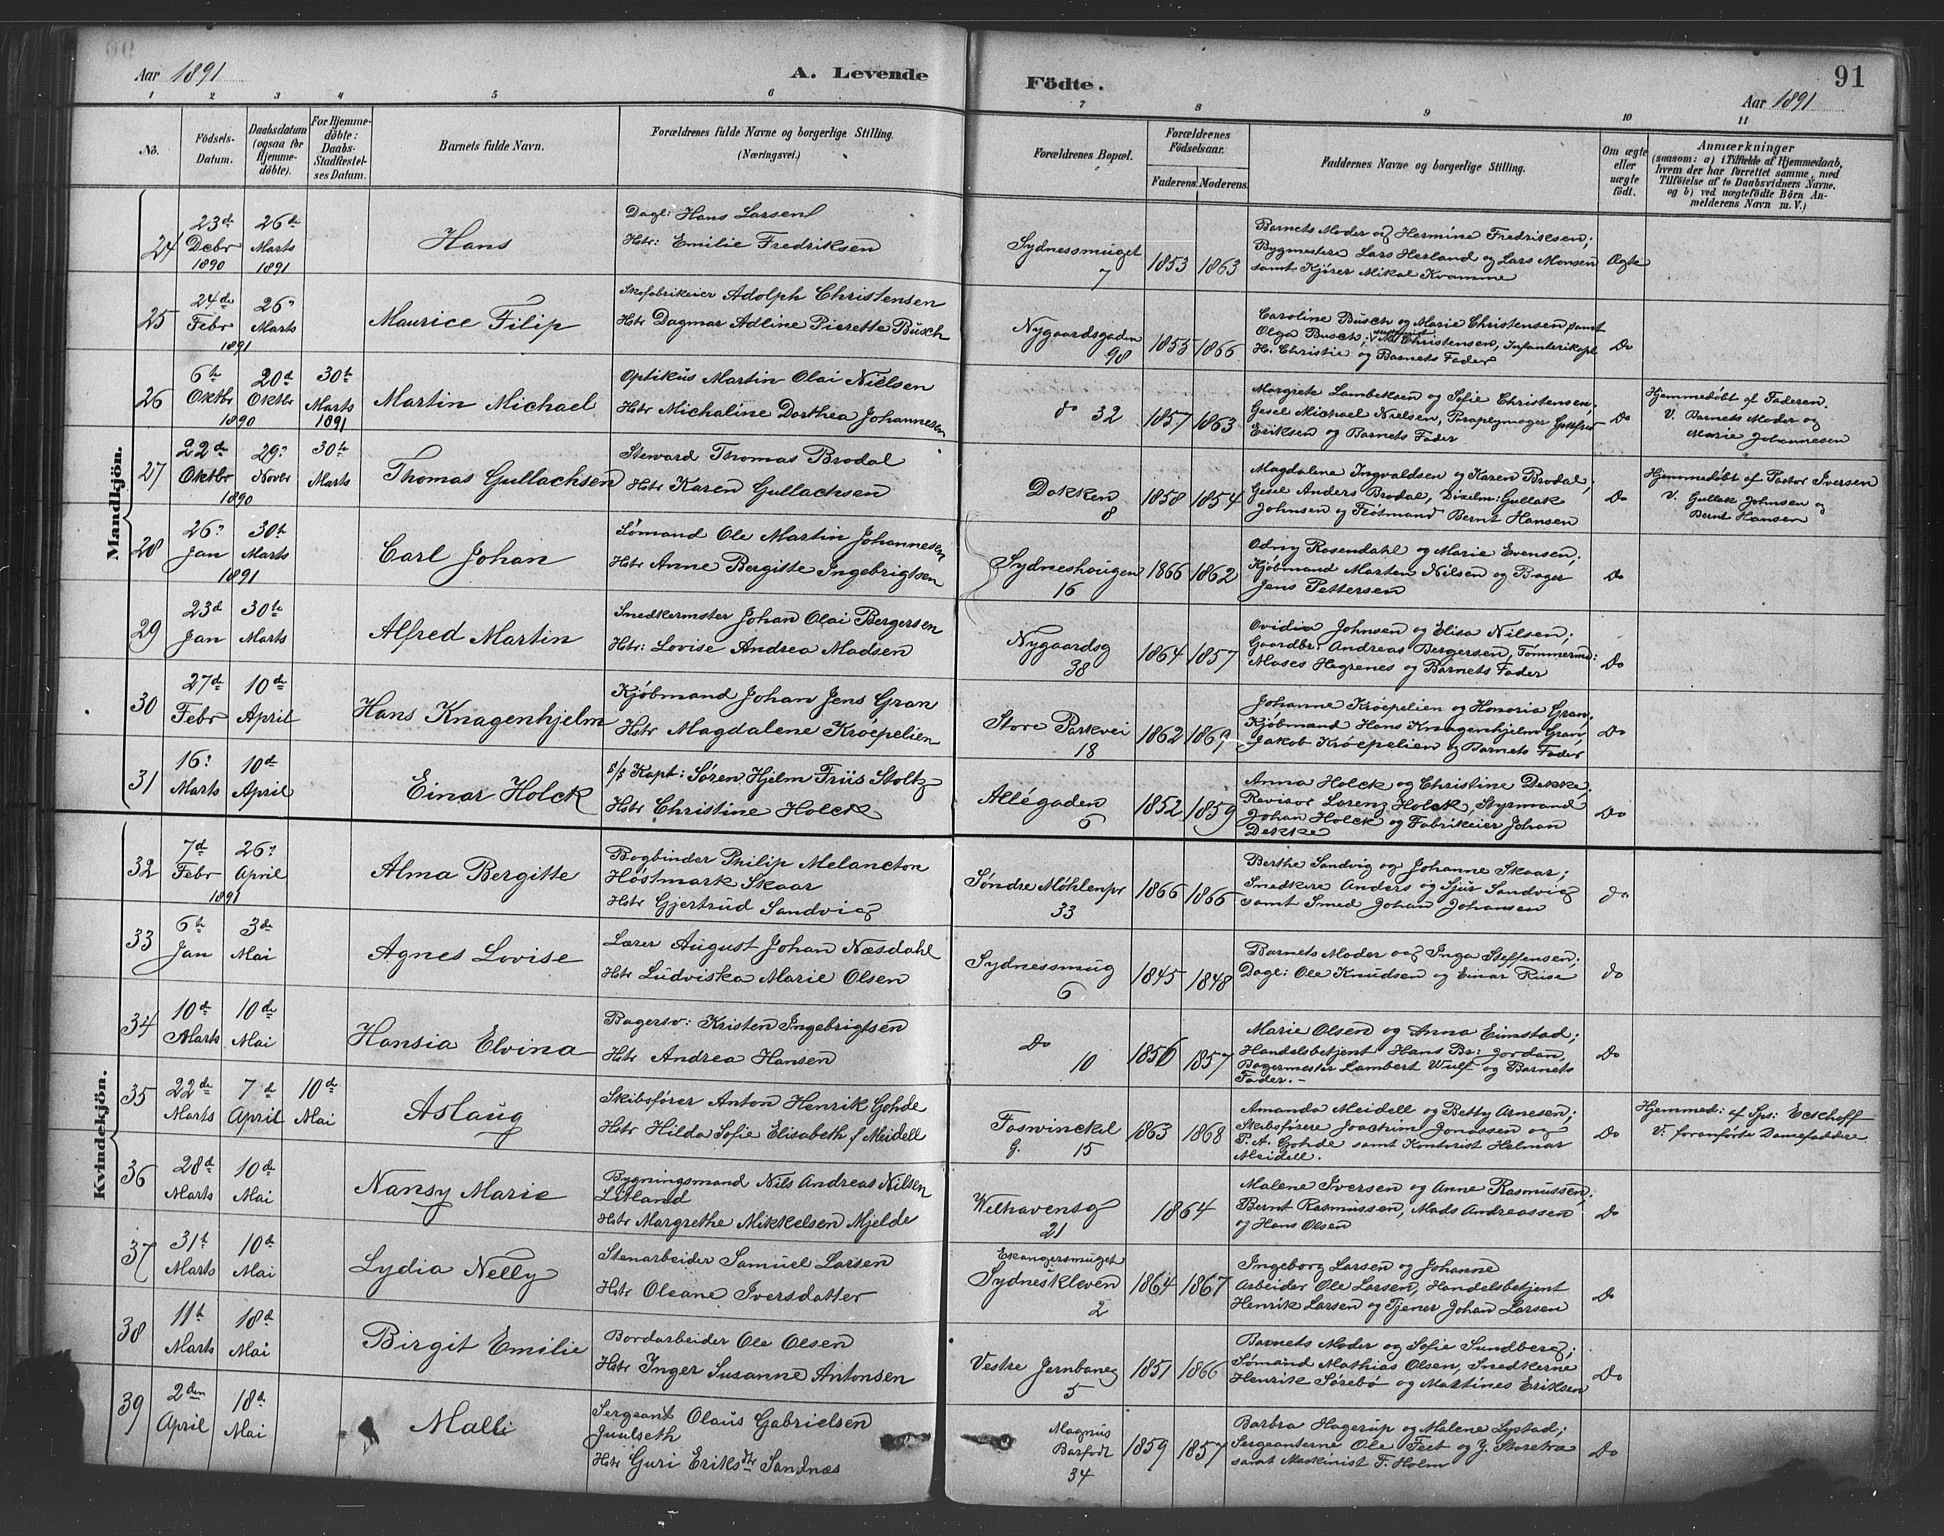 Aar 1891
A. Levende
Födte.
91
Aar 1891
1 2 3 4 5 6 7 8 9 10 11
No.
Födsels-Datum.
Daabsdatum (ogsaa for Hjemmedöbte).
For Hjemmedöbte: Daabs-Stadfæstelses Datum.
Barnets fulde Navn.
Forældrenes fulde Navne og borgerlige Stilling.
(Næringsvei.)
Forældrenes Bopæl.
Forældrenes Födselsaar.
Faderens. Moderens.
Faddernes Navne og borgerlige Stilling.
Om ægte eller uægte födt.
Anmærkninger
(saasom: a) i Tilfælde af Hjemmedaab, hvem der har forrettet samme, med Tilföielse af to Daabsvidners Navne, og b) ved uægtefödte Börn Anmelderens Navn m. V.)
Mandkjön.
24
23d Debr 1890
26de Marts 1891
Hans
Dagl: Hans Larsen
Hstr: Emilie Fredriksen
Sydnessmuget 7
1853 1863
Barnets Moder og Hermine Fredriksen;
Bygmestere Lars Herland og Lars Monsen
samt Kjører Mikal Kvamme
Ægte
25
24de Febr 1891
26" Marts
Maurice Filip
Skofabrikeier Adolph Christensen
Hstr Dagmar Adline Pierette Busch
Nygaardsgaden 98
1855 1866
Caroline Busch og Marie Christensen, samt
Olga Busch; Christensen, Infanterikapt
H. Christie og Barnets Fader
Do
26
6th Oktbr 1890
20d Oktbr
30th Marts 1891
Martin Michael
Optikus Martin Olai Nielsen
Hstr Michaline Dorthea Johannesen
do 32
1857 1863
Margrete Lambeksen og Sofie Christensen;
Gesel Michael Nielsen, Paraplymager
Eriksen og Barnets Fader
Do
Hjemmedøbt af Faderen.
V. Barnets Moder og
Marie Johannesen
27
22d Oktbr 1890
29" Novbr
30th Marts
Thomas Gullachsen
Steward Thomas Brodal
Hstr Karen Gullachsen
Dokken 8
1858 1854
Magdalene Ingvaldsen og Karen Brodal;
Gesel Anders Brodal, Dixelm: Gullak
Johnsen og Frøtmand Bernt Hansen
Do
Hjemmedøbt af Pastor Iversen
V. Gullak Johnsen og
Bernt Hansen
28
26" Jan 1891
30th Marts
Carl Johan
Sømand Ole Martin Johannesen
Hstr Anne Bergitte Ingebrigtsen
Sydneshougen 16
1866 1862
Odny Rosendahl og Marie Evensen;
Kjøbmand Marten Nilsen og Bager
Jens Pettersen
Do
29
23d Jan
30th Marts
Alfred Martin
Snedkermster Johan Olai Bergersen
Hstr: Lovise Andrea Madsen
Nygaardsg 38
1864 1857
Ovidia Johnsen og Elisa Nilsen;
Gaardbr: Andreas Bergersen, Tømmermd:
Moses Hegrenes og Barnets Fader
Do
30
27de Febr
10de April
Hans Knagenhjelm
Kjøbmand Johan Jens Gran
Hstr Magdalene Kroepelien
Store Parkvei 18
1862 1869
Johanne Krøepelien og Honoria Gran,
Kjøbmand Hans Knagenhjelm Gran,
Jakob Krøepelien og Barnets Fader
Do
31
16" Marts
10de April
Einar Holck
S/S Kapt: Søren Hjelm Friis Stoltz
Hstr Christine Holck
Allégaden 6
1852 1859
Anna Holck og Christine Dekke.
Revisor Lorenz Holck, Styrmand
Johan Holck og Fabrikeier Johan
Dekke
Do
Kvindekjön.
32
7d Febr 1891
26" April
Alma Bergitte
Bogbinder Philip Melancton
Høstmark Skaar
Hstr Gjertrud Sandvig
Søndre Møhlenpr 33
1866 1866
Berthe Sandvig og Johanne Skaar;
Snedkere Anders og Sjur Sandvig
samt Smed Johan Johansen
do
33
6th Jan
3die Mai
Agnes Lovise
Lærer August Johan Næsdahl
Hstr Ludviska Marie Olsen
Sydnessmug 6
1845 1848
Barnets Moder og Inga Steffensen;
Dagl: Ole Knudsen og Einar Riise
do
34
10de Marts
10de Mai
Hansia Elvina
Bagersv: Kristen Ingebrigtsen
Hstr Andrea Hansen
Do 10
1856 1857
Marie Olsen og Anna Eimstad;
Handelsbetjent Hans Br: Jordan,
Bagermester Lambert Wulf og Barnets
Fader.-
Do
35
22de Marts
7de April
10de Mai
Aslaug
Skibsfører Anton Henrik Gohde
Hstr Hilda Sofie Elisabeth f Meidell
Foswinckel G. 15
1863 1868
Amanda Meidell og Betty Arnesen;
Skibsførere Joachim Jonassen og
P. A. Gohde samt Kontorist Helmar
Meidell.
Do
Hjemmed: af Sps: Eckhoff
V: foranførte Damefaddere
36
28de Marts
10de Mai
Nansy Marie
Bygningsmand Nils Andreas Nilsen
Litland
Hstr Margrethe Mikkelsen Mjelde
Welhavensg 21
1864
Malene Iversen og Anne Rasmussen;
Bernt Rasmussen, Mads Andreassen
og Hans Olsen
Do
37
31te Marts
10de Mai
Lydia Nelly
Stenarbeider Samuel Larsen
Hstr Oleane Iversdatter
Eskangersmuget
Sydneskleven 2
1864 1867
Ingeborg Larsen og Johanne
Arbeider Ole Larsen, Handelsbetjent
Henrik Larsen og Tjener Johan Larsen
Do
38
11th Marts
18de Mai
Birgit Emilie
Bordarbeider Ole Olsen
Hstr Inger Susanne Antonsen
Vestre Jernbaneg 5
1851 1866
Barnets Moder og Sofie Sundberg;
Sømand Mathias Olsen, Snedkerne
Henrik Sørebø og Martines Eriksen
Do
39
2den April
18de Mai
Malli
Sergeant Olaus Gabrielsen
Juulseth
Hstr Guri Eriksdtr Sandnæs
Magnus Barfodt 34
1859 1857
Barbra Hagerup og Malene Lystad;
Sergeanterne Ole Feet og J. Storetræ
samt Maskinist F. Holm
Do